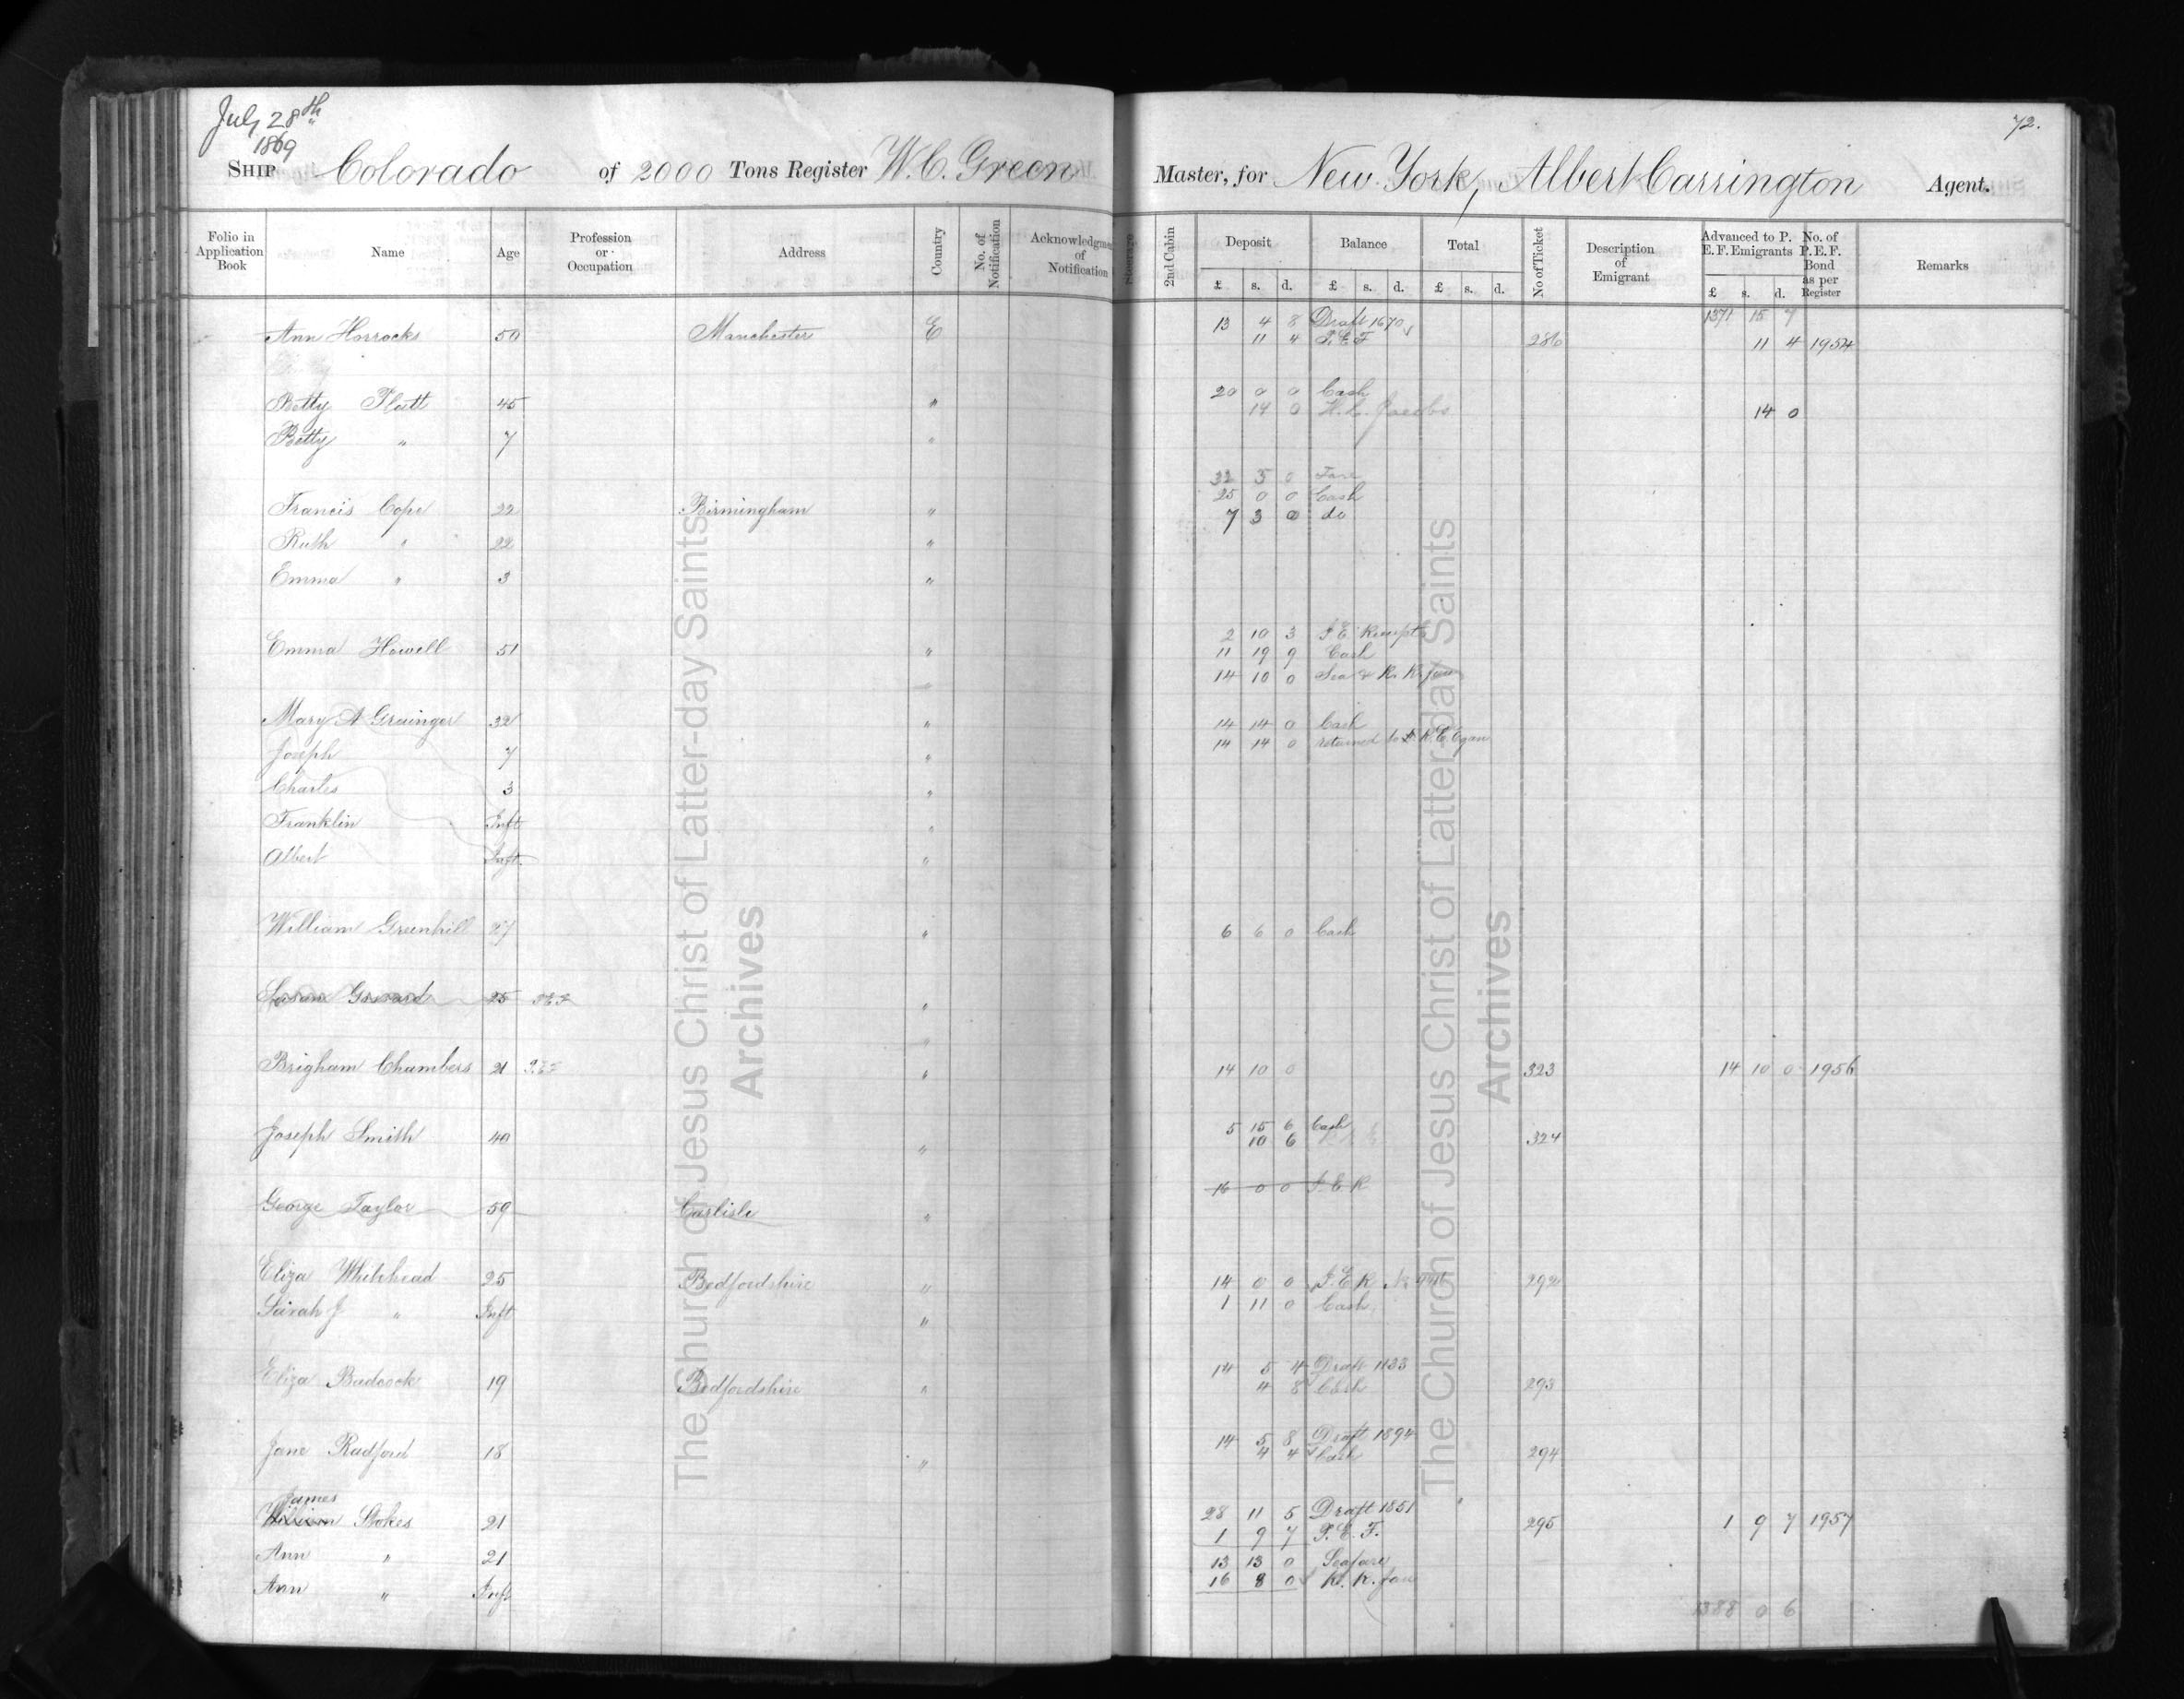 July 28th
1869
72.
SHIP Colorado of 2000 Tons Register W. C. Green Master, for New York, Albert Carrington Agent.
Folio in Application Book Name Age Profession or Occupation Address Country No. of Notification Acknowledgment of Notification Steerage 2nd Cabin Deposit Balance Total No of Ticket Description of Emigrant Advanced to P. E. F. Emigrants No. of P. E. F. Bond as per Register Remarks
£ s. d. £ s. d. £ s. d. £ s. d.
13 4 8 Draft 1670 1371 15 7
Ann Horrocks 50 Manchester E 11 4 P.E.F 286 11 4 1954
20 0 0 Cash
Betty Platt 45 " 14 0 H. L. Jacobs 14 0
Betty " 7 "
32 3 0 Fare
25 0 0 Cash
Francis Cope 22 Birmingham " 7 3 0 do
Ruth " 22 "
Emma " 3 "
2 10 3 P E Receipt
Emma Howell 51 " 11 19 9 Cash
14 10 0 Sea & R. R. fare
Mary A Grainger 32 " 14 14 0 Cash
14 14 0 returned to R. C. Egan
Joseph 7 "
Charles 3 "
Franklin Inft "
Albert Inft. "
William Greenhill 27 " 6 6 0 Cash
25 "
Brigham Chambers 21 P.E.F " 14 10 0 323 14 10 0 1956
5 15 6 Cash
Joseph Smith 40 " 10 6 324
16 0 0 P.E.R
George Taylor 59 Carlisle "
Eliza Whitehead 25 Bedfordshire " 14 0 0 P.E.R No 292
Sarah J " Inft " 1 11 0 Cash
14 5 4 Draft 1133
Eliza Badcock 19 Bedfordshire " 4 8 Cash 293
14 5 8 Draft 1894
Jane Radford 18 " 4 4 Cash 294
James
William Stokes 21 28 11 5 Draft 1851 295 1 9 7 1957
1 9 7 P.E.F.
Ann " 21 13 13 0 Seafare
Ann " Inft 16 8 0 R. R. fare
1388 0 6
The Church of Jesus Christ of Latter-day Saints
Archives
The Church of Jesus Christ of Latter-day Saints
Archives